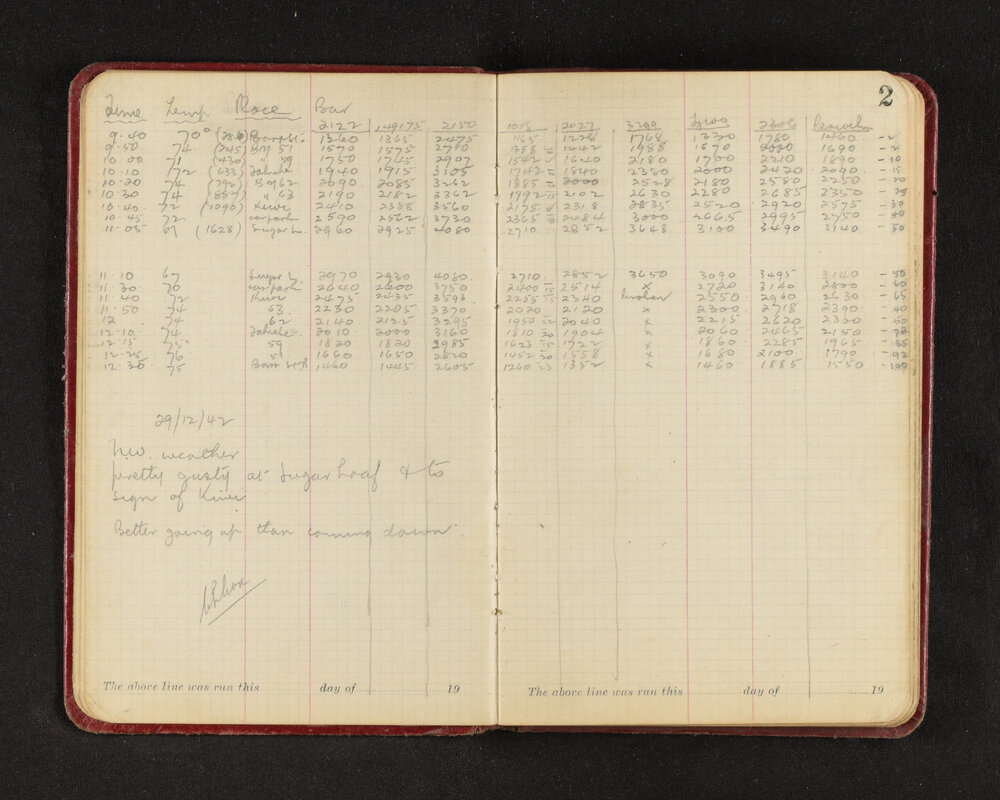 2
Time Temp Place Bar
2122 149175 2150 1015 2027 3789 2306
9.40 70° Barrk St. 1360 1365 2475 1165 1228 1768 1220 1780 1460 -2
9.50 74 (245) BM 51 1570 1575 2710 1358 1442 1988 1570 2000 1690 -2
10.00 71 (430) " 59 1750 1745 2907 1542 1640 2180 1700 2210 1890 -10
10.10 72 (633) Takahe 1940 1915 3105 1742 1840 2380 2000 2420 2090 -15
10.20 74 (792) BM 62 2090 2085 3262 1885 2000 2528 2180 2580 2250 -20
10.30 74 (887) " 63 2190 2182 3362 1992 2102 2630 2280 2685 2350
10.40 72 (1090) Kiwi 2410 2388 3560 2175 2318 2835 2520 2920 2575 -30
10.45 72 carpark 2590 2562 3730 2365 2484 3000 2665 2995 2750 -40
11.05 67 (1628) Sugar L. 2960 2925 4080 2710 2852 3648 3100 3490 3140 -50
11.10 67 Sugar L 2970 2930 4080 2710 2852 3650 3090 3495 3140 -50
11.30 70 carpark 2640 2600 3750 2400 15 2514 x 2720 3140 2800 -60
11.40 72 Kiwi 2475 2435 3593 2255 15 2340 broken 2550 2960 2630 -65
11.50 74 63 2230 2205 3370 2020 2120 x 2300 2718 2390 -40
12 74 62 2140 2125 3295 1950 2040 x 2215 2620 2300 -50
12.10 74 Takahe 2010 2000 3160 1810 20 1904 x 2060 2465 2150
12.15 75 59 1820 1820 2985 1623 15 1722 x 1860 2285 1965 -85
12.25 76 51 1660 1650 2820 1452 20 1558 x 1680 2100 1790 -92
12.35 75 1460 1445 2605 1260 1352 x 1460 1885 1550 -100
29/12/42
N.W. weather
pretty gusty at Sugar Loaf & to
sign of Kiwi
Better going up than coming down.
The above line was run this day of 19
The above line was run this day of 19